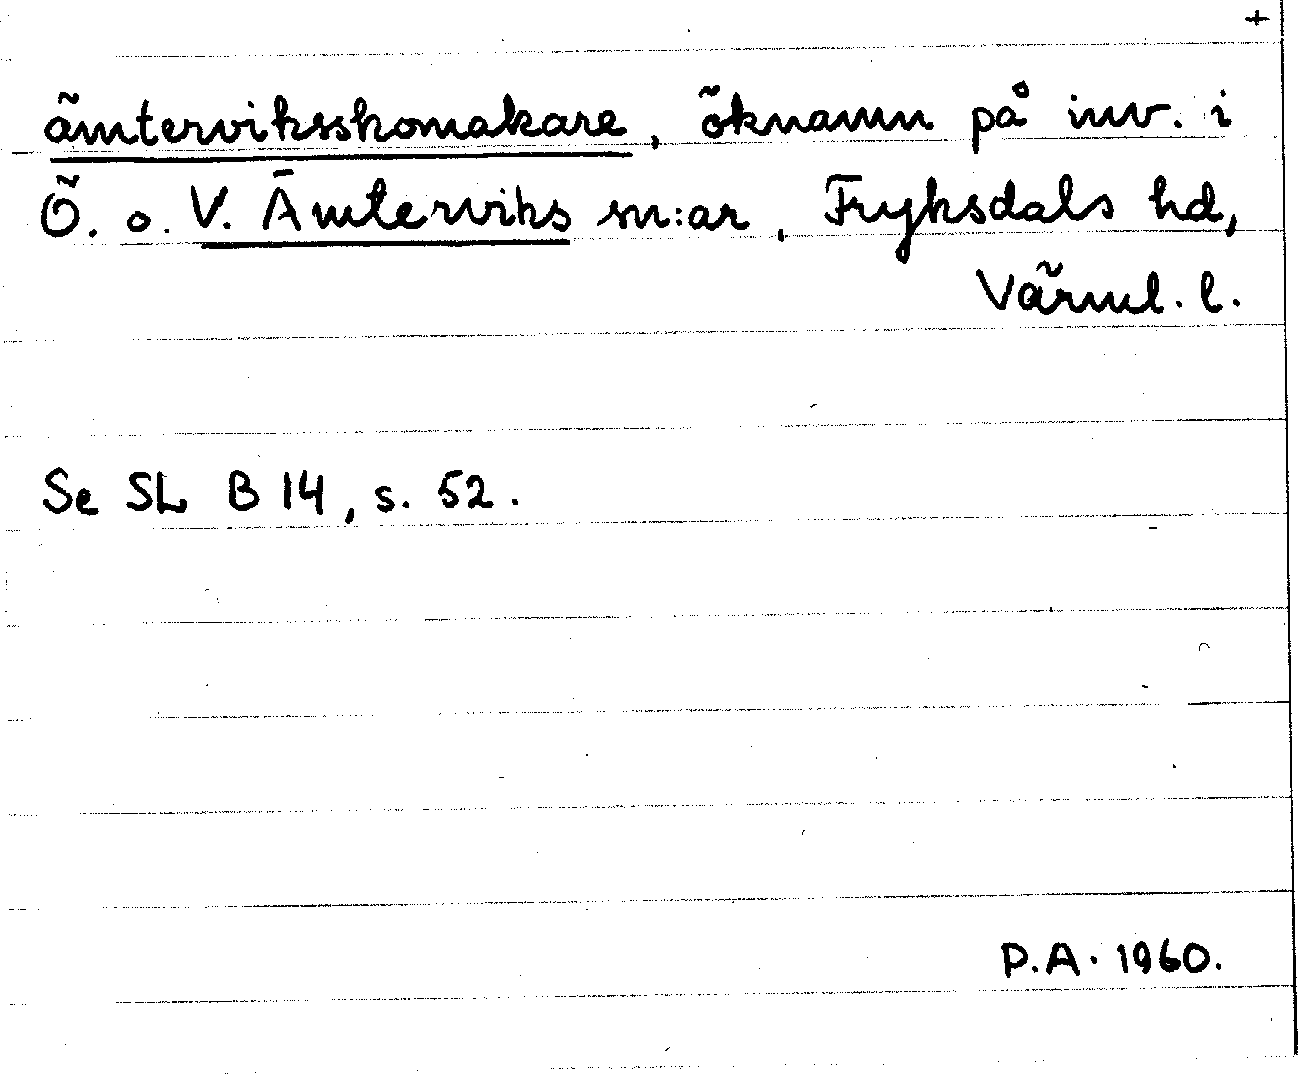 +
ämterviksskomakare, öknamn på inv. i
Ö. o. V. Ämterviks sn:ar, Fryksdals hd,
Värml. l.
Se SL B 14, s. 52.
P.A. 1960.